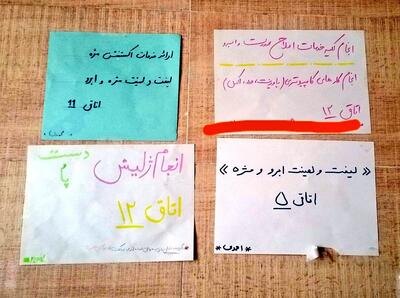 ارائه خدمات اکستنشن مژه
لیفت و لمینت مژه و ابرو
اتاق 11
انجام کلیه خدمات اصلاح صورت و ابرو
انجام کارهای کامپیوتری (
اتاق ۱۲
دست
پا
انجام ژلیش
اتاق ۱۲
《 لیفت و لمینت ابرو و مژه 》
اتاق ۵